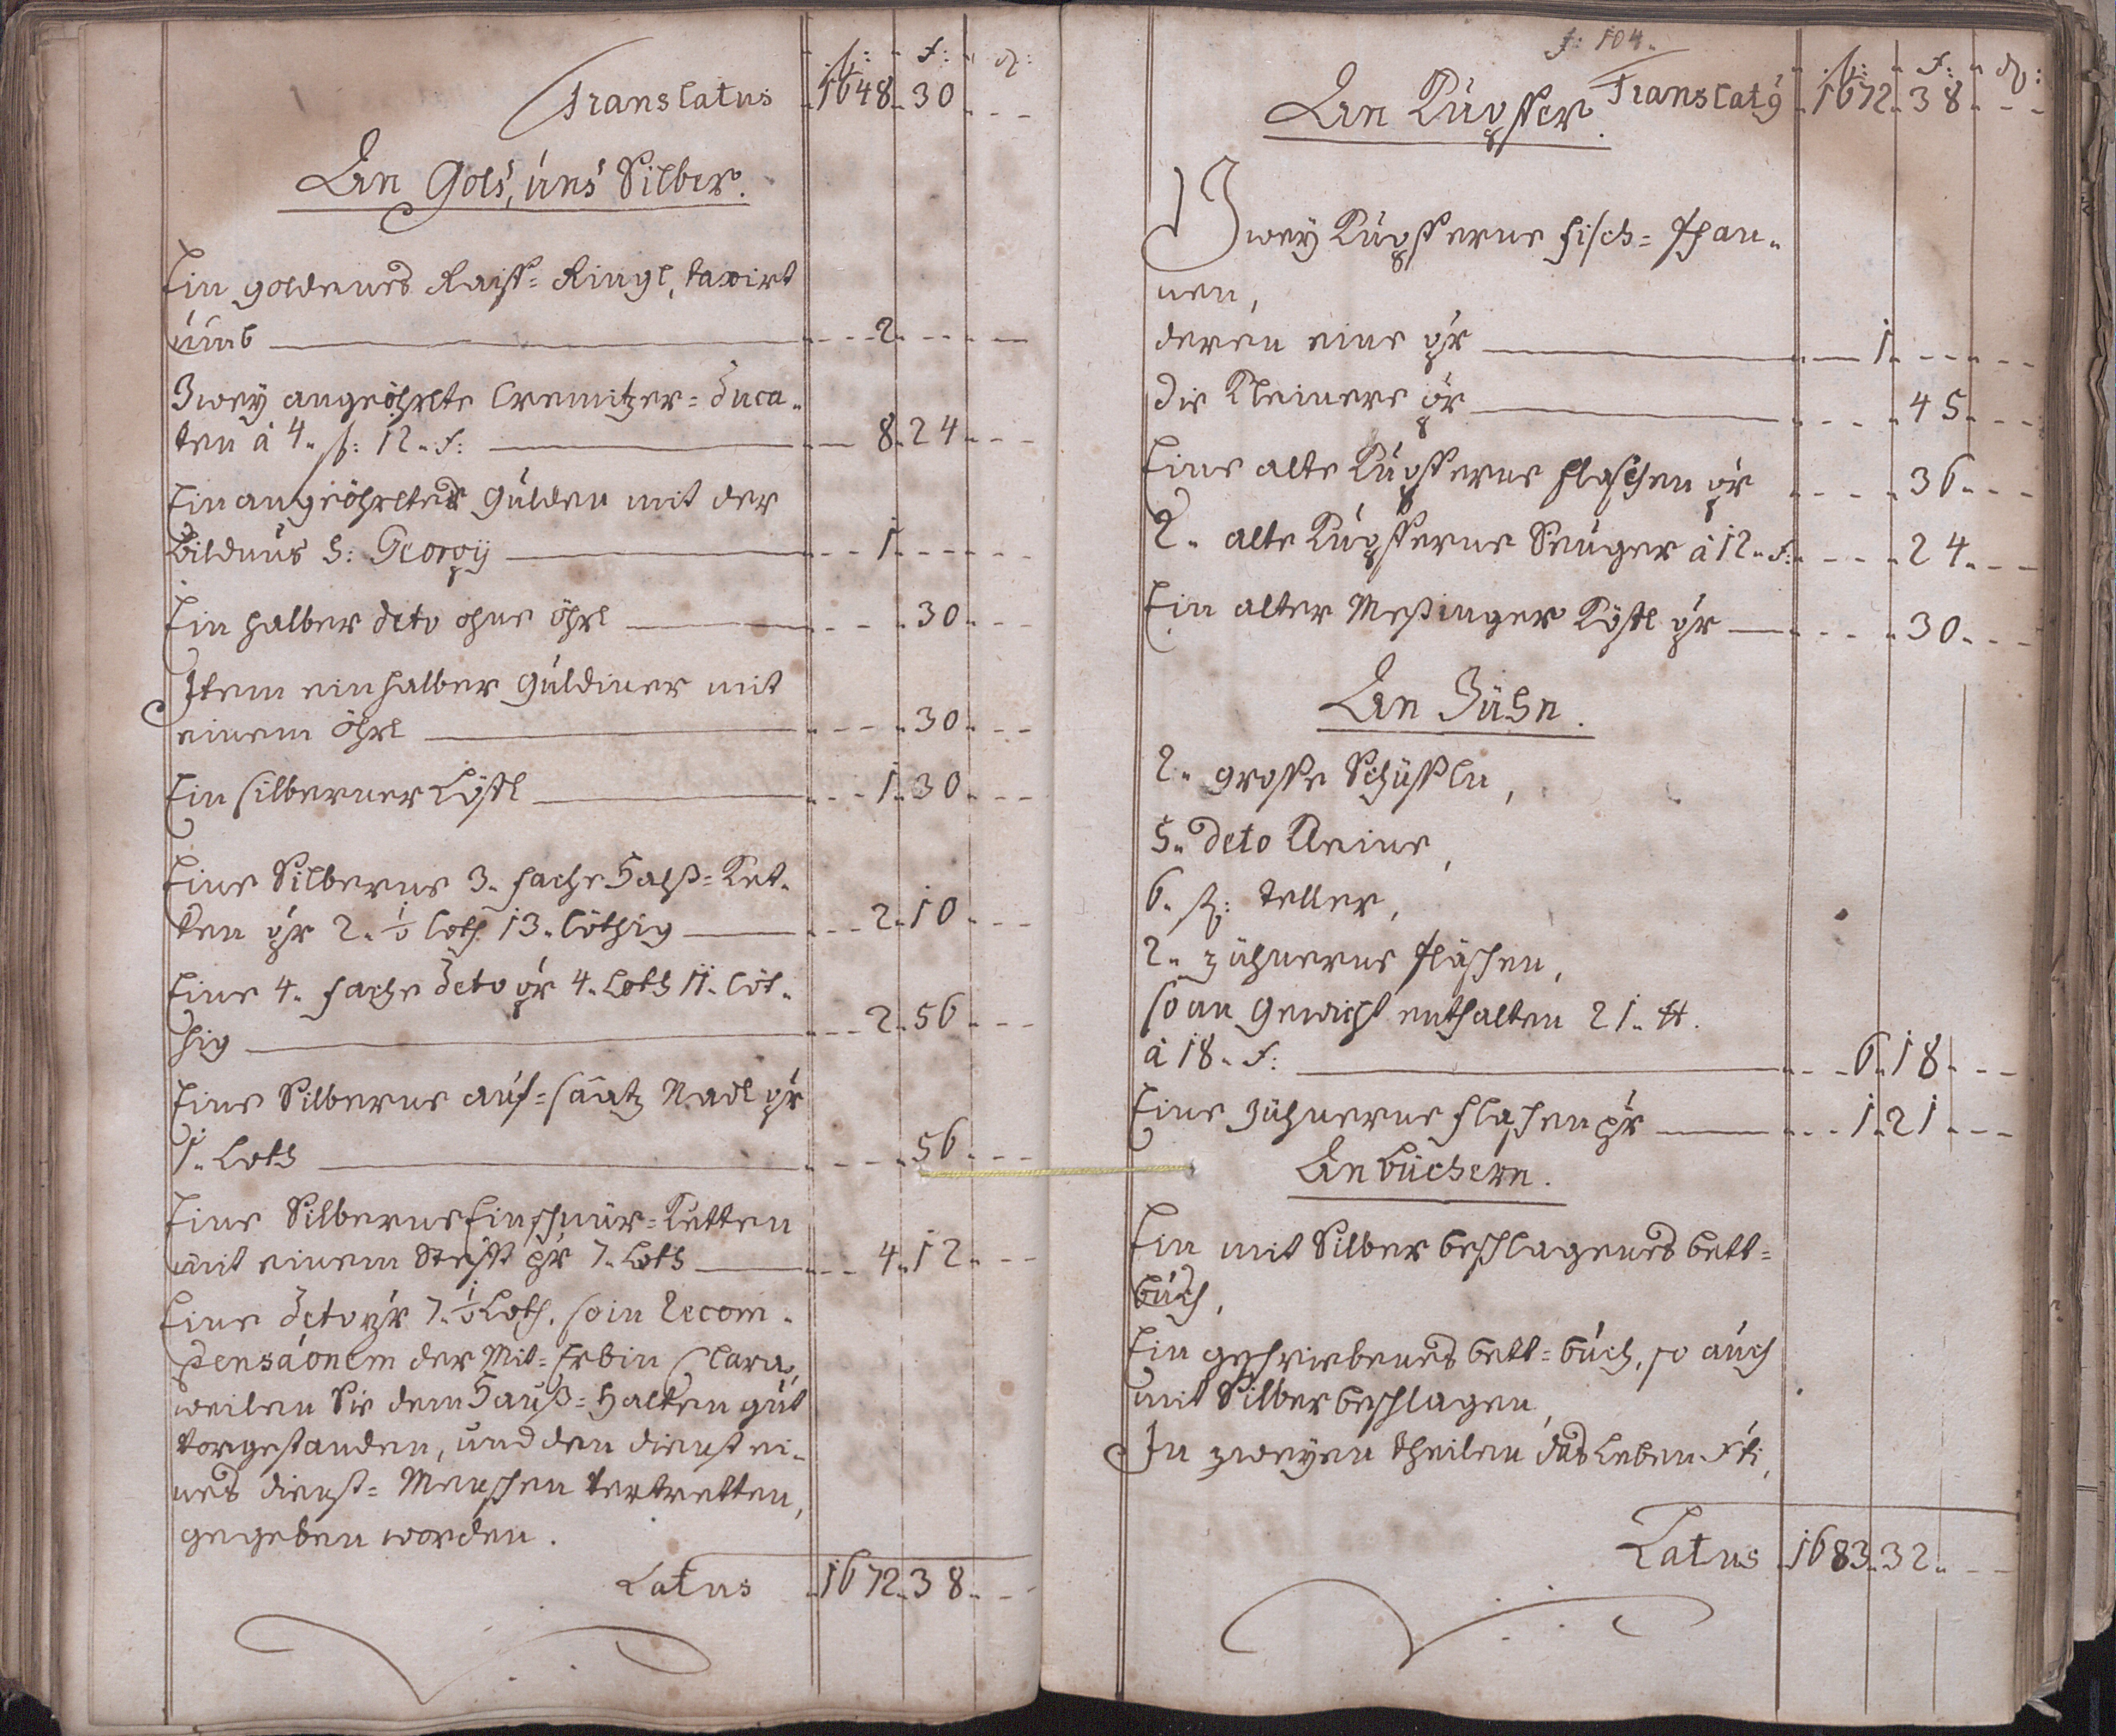 fl: f: ₰:
Translatus 1648 30
An Gold, und Silber.
Ein goldenes Raiff= Ringl, taxirt
umb 2
Zwey angeöhrlte Cremitzer= Duca=
ten à 4. fl: 12. f: 8 24
Ein angeöhrlter Gulden mit der
Bildnus S: Georgij 1
Ein halber deto ohne öhrl 30
Item ein halber Guldiner mit
einem öhrl 30
Ein silberner Löffl 1 30
Eine Silberne 3. fache Halß= Ket=
ten pr 2. ½ loth 13. löthig 2 10
Eine 4. fache deto pr 4. Loth 11. löt=
hig 2 56
Eine Silberne auf= saatz Nadl pr
1. Loth 56
Eine Silberne Einschnür= Ketten
mit einem Stefft pr 7. Loth 4 12
Eine deto pr 7. ½ Loth. so in Recom=
pensaonem der Mit= Erbin Clara,
weilen Sie dem Hauß= Halten gut
vorgestanden, und den dienst ei=
nes dienst= Menschen vertretten,
gegeben worden.
Latus 1672 38
f: 104.
fl: f: ₰:
An Kupffer. Translatus 1672 38
Zwey Kupfferne fisch= Pfan=
nen,
deren eine pr 1
die Kleinere pr 45
Eine alte Kupfferne flaschen pr 36
2. alte Kupfferne Seuger à 12. f: 24
Ein alter Meßinger Köstl pr 30
An Zühn.
2. grosse Schüssln,
5. deto Kleine,
6. st: teller,
2. zühnerne fläschen,
so an Gewicht enthalten 21. ℔.
à 18. f: 6 18
Eine Zühnerne flaschen pr 1 21
An büchern.
Ein mit Silber beschlagenes bett=
buch,
Ein geschriebenes bett= buch, so auch
mit Silber beschlagen,
In zweyen theilen das Leben Xti,
Latus 1683 32